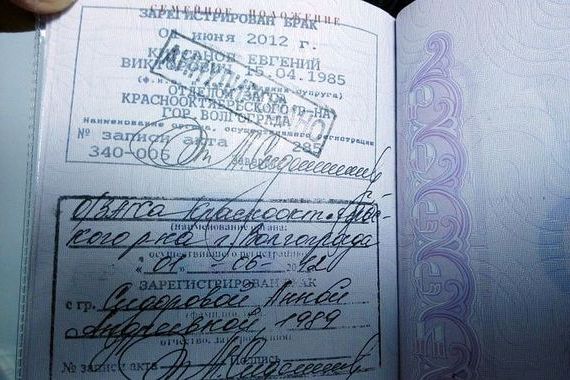 СЕМЕЙНОЕ ПОЛОЖЕНИЕ
ЗАРЕГИСТРИРОВАН БРАК
01 ИЮНЯ 2012 г.
ЕВГЕНИЙ
15.04.1985
ОТДЕЛОМ
КРАСНООКТЯБРЬСКОГО Р-НА
ГОР. ВОЛГОГРАДА
Наименование органа, осуществившего регистрацию
№ записи акта 285
340-006 Заверено
ОЗАГСа Краснооктябрь-
ского р-на г. Волгограда
(наименование органа,
осуществившего регистрацию)
"01" -06- 2012
ЗАРЕГИСТРИРОВАН БРАК
с гр. Сидоровой Анной
Андреевной, 1989
отчество, дата рождения)
№ записи акта Подпись